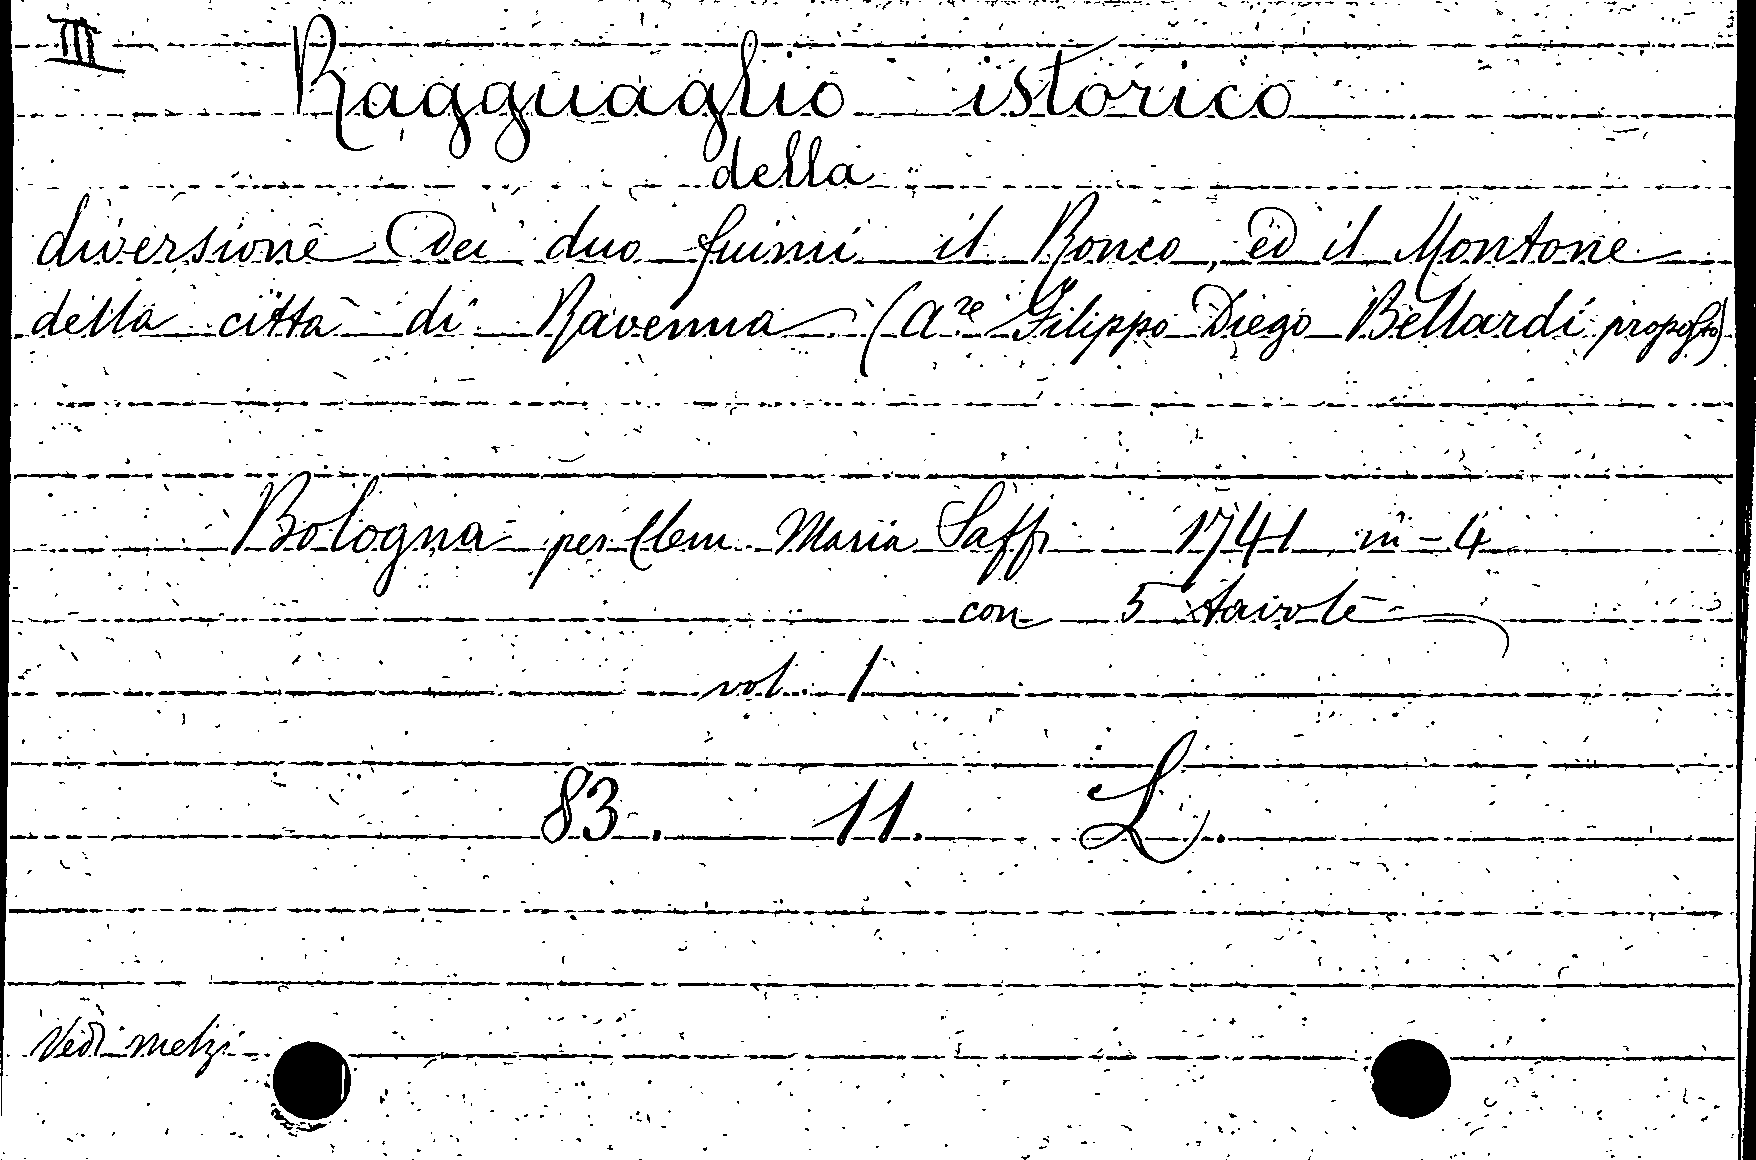 III
Ragguaglio istorico
della
diversione dei duo fuimi il Ronco, ed il Montone
della città di Ravenna (Are Filippo Diego Bellardi proposto)
Bologna per Clem. Maria Saffi 1741 in-4
con 5 tavole
vol. 1
83. 11. L.
Vedi Melzi